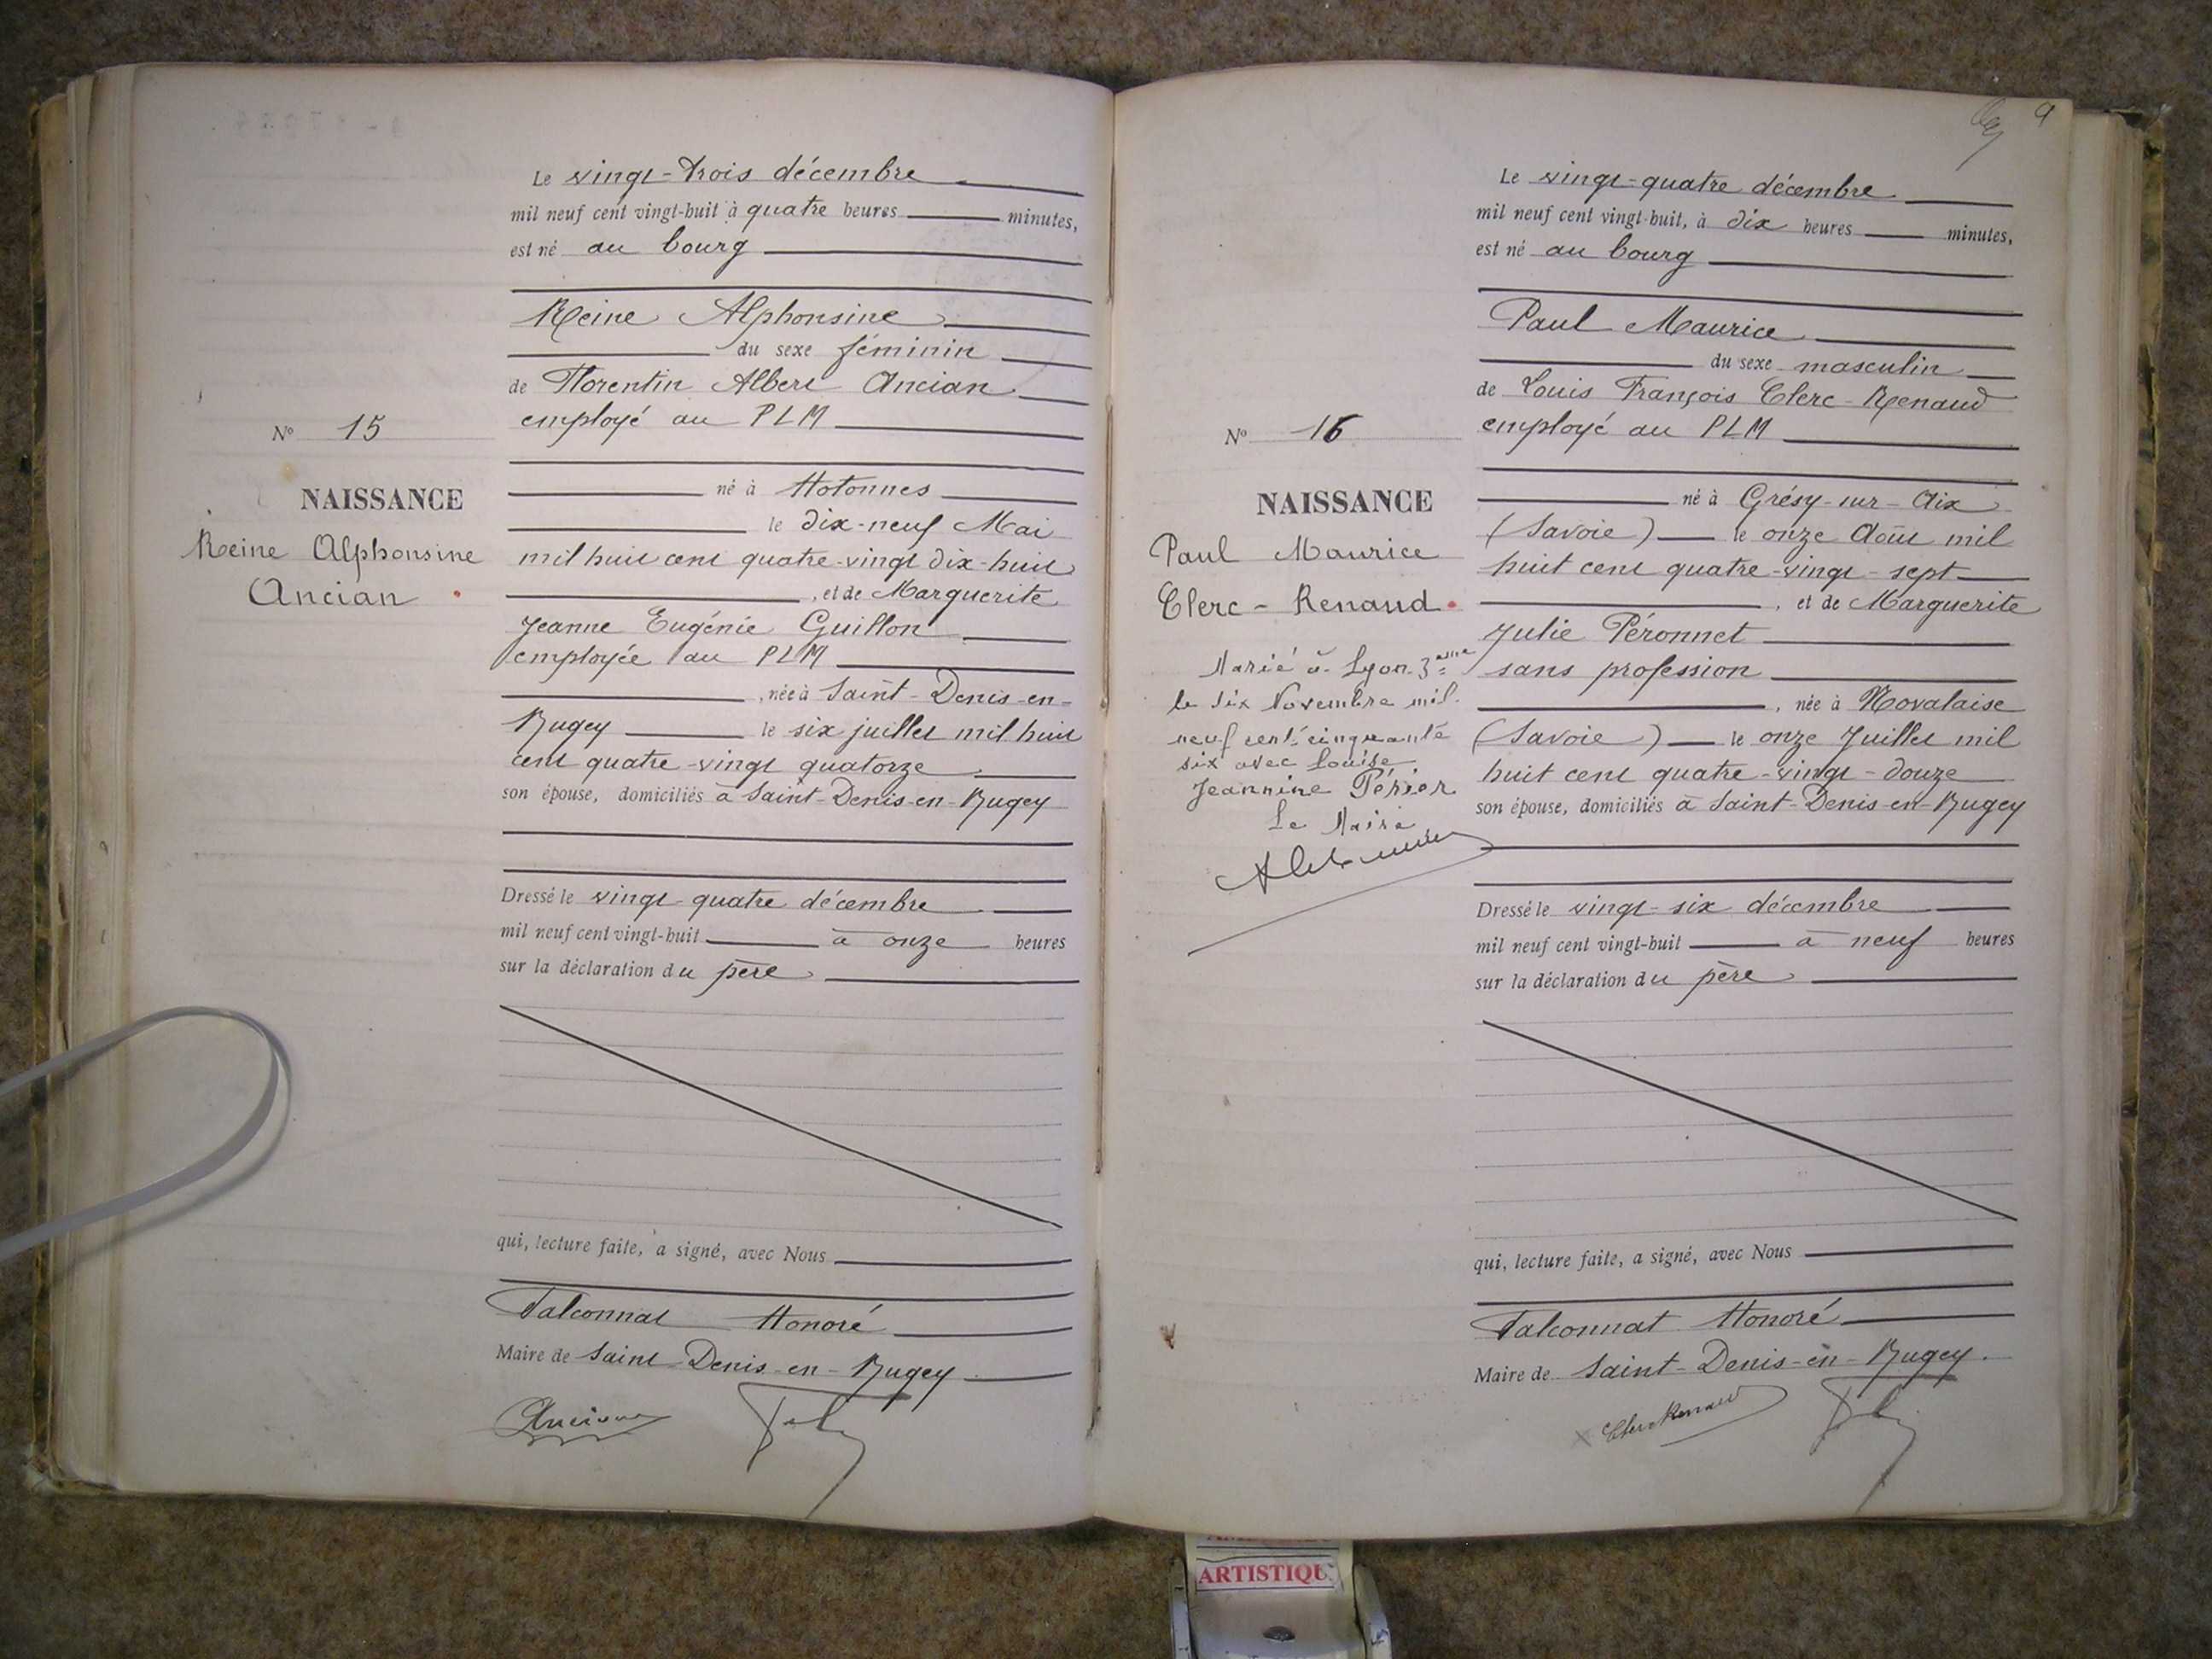 Le vingt-trois décembre
mil neuf cent vingt-huit à quatre heures minutes,
est né au bourg
Reine Alphonsine
du sexe féminin
de Florentin Albert Ancian
employé au PLM
N° 15
NAISSANCE
Reine Alphonsine
Ancian
né à Hotonnes
le dix-neuf Mai
mil huit cent quatre-vingt dix-huit
, et de Marguerite
Jeanne Eugénie Guillon
employée au PLM
, née à Saint-Denis-en-
Bugey le six juillet mil huit
cent quatre-vingt quatorze
son épouse, domiciliés à Saint-Denis-en-Bugey
Dressé le vingt-quatre décembre
mil neuf cent vingt-huit à onze heures
sur la déclaration du père
qui, lecture faite, a signé, avec Nous
Falconnat Honoré
Maire de Saint-Denis-en-Bugey
Ancian
9
Le vingt-quatre décembre
mil neuf cent vingt-huit, à dix heures minutes,
est né au bourg
Paul Maurice
du sexe masculin
de Louis François Clerc-Renaud
employé au PLM
N° 16
NAISSANCE
Paul Maurice
Clerc-Renaud
Marié à Lyon 3eme
le six Novembre mil
neuf cent cinquante
six avec Louise
Jeannine Périer
Le Maire
né à Grésy-sur-Aix
(Savoie) le onze Août mil
huit cent quatre-vingt-sept
, et de Marguerite
Julie Péronnet
sans profession
, née à Novalaise
(Savoie) le onze Juillet mil
huit cent quatre-vingt-douze
son épouse, domiciliés à Saint-Denis-en-Bugey
Dressé le vingt-six décembre
mil neuf cent vingt-huit à neuf heures
sur la déclaration du père
qui, lecture faite, a signé, avec Nous
Falconnat Honoré
Maire de Saint-Denis-en-Bugey.
Clerc Renaud
ARTISTIQU